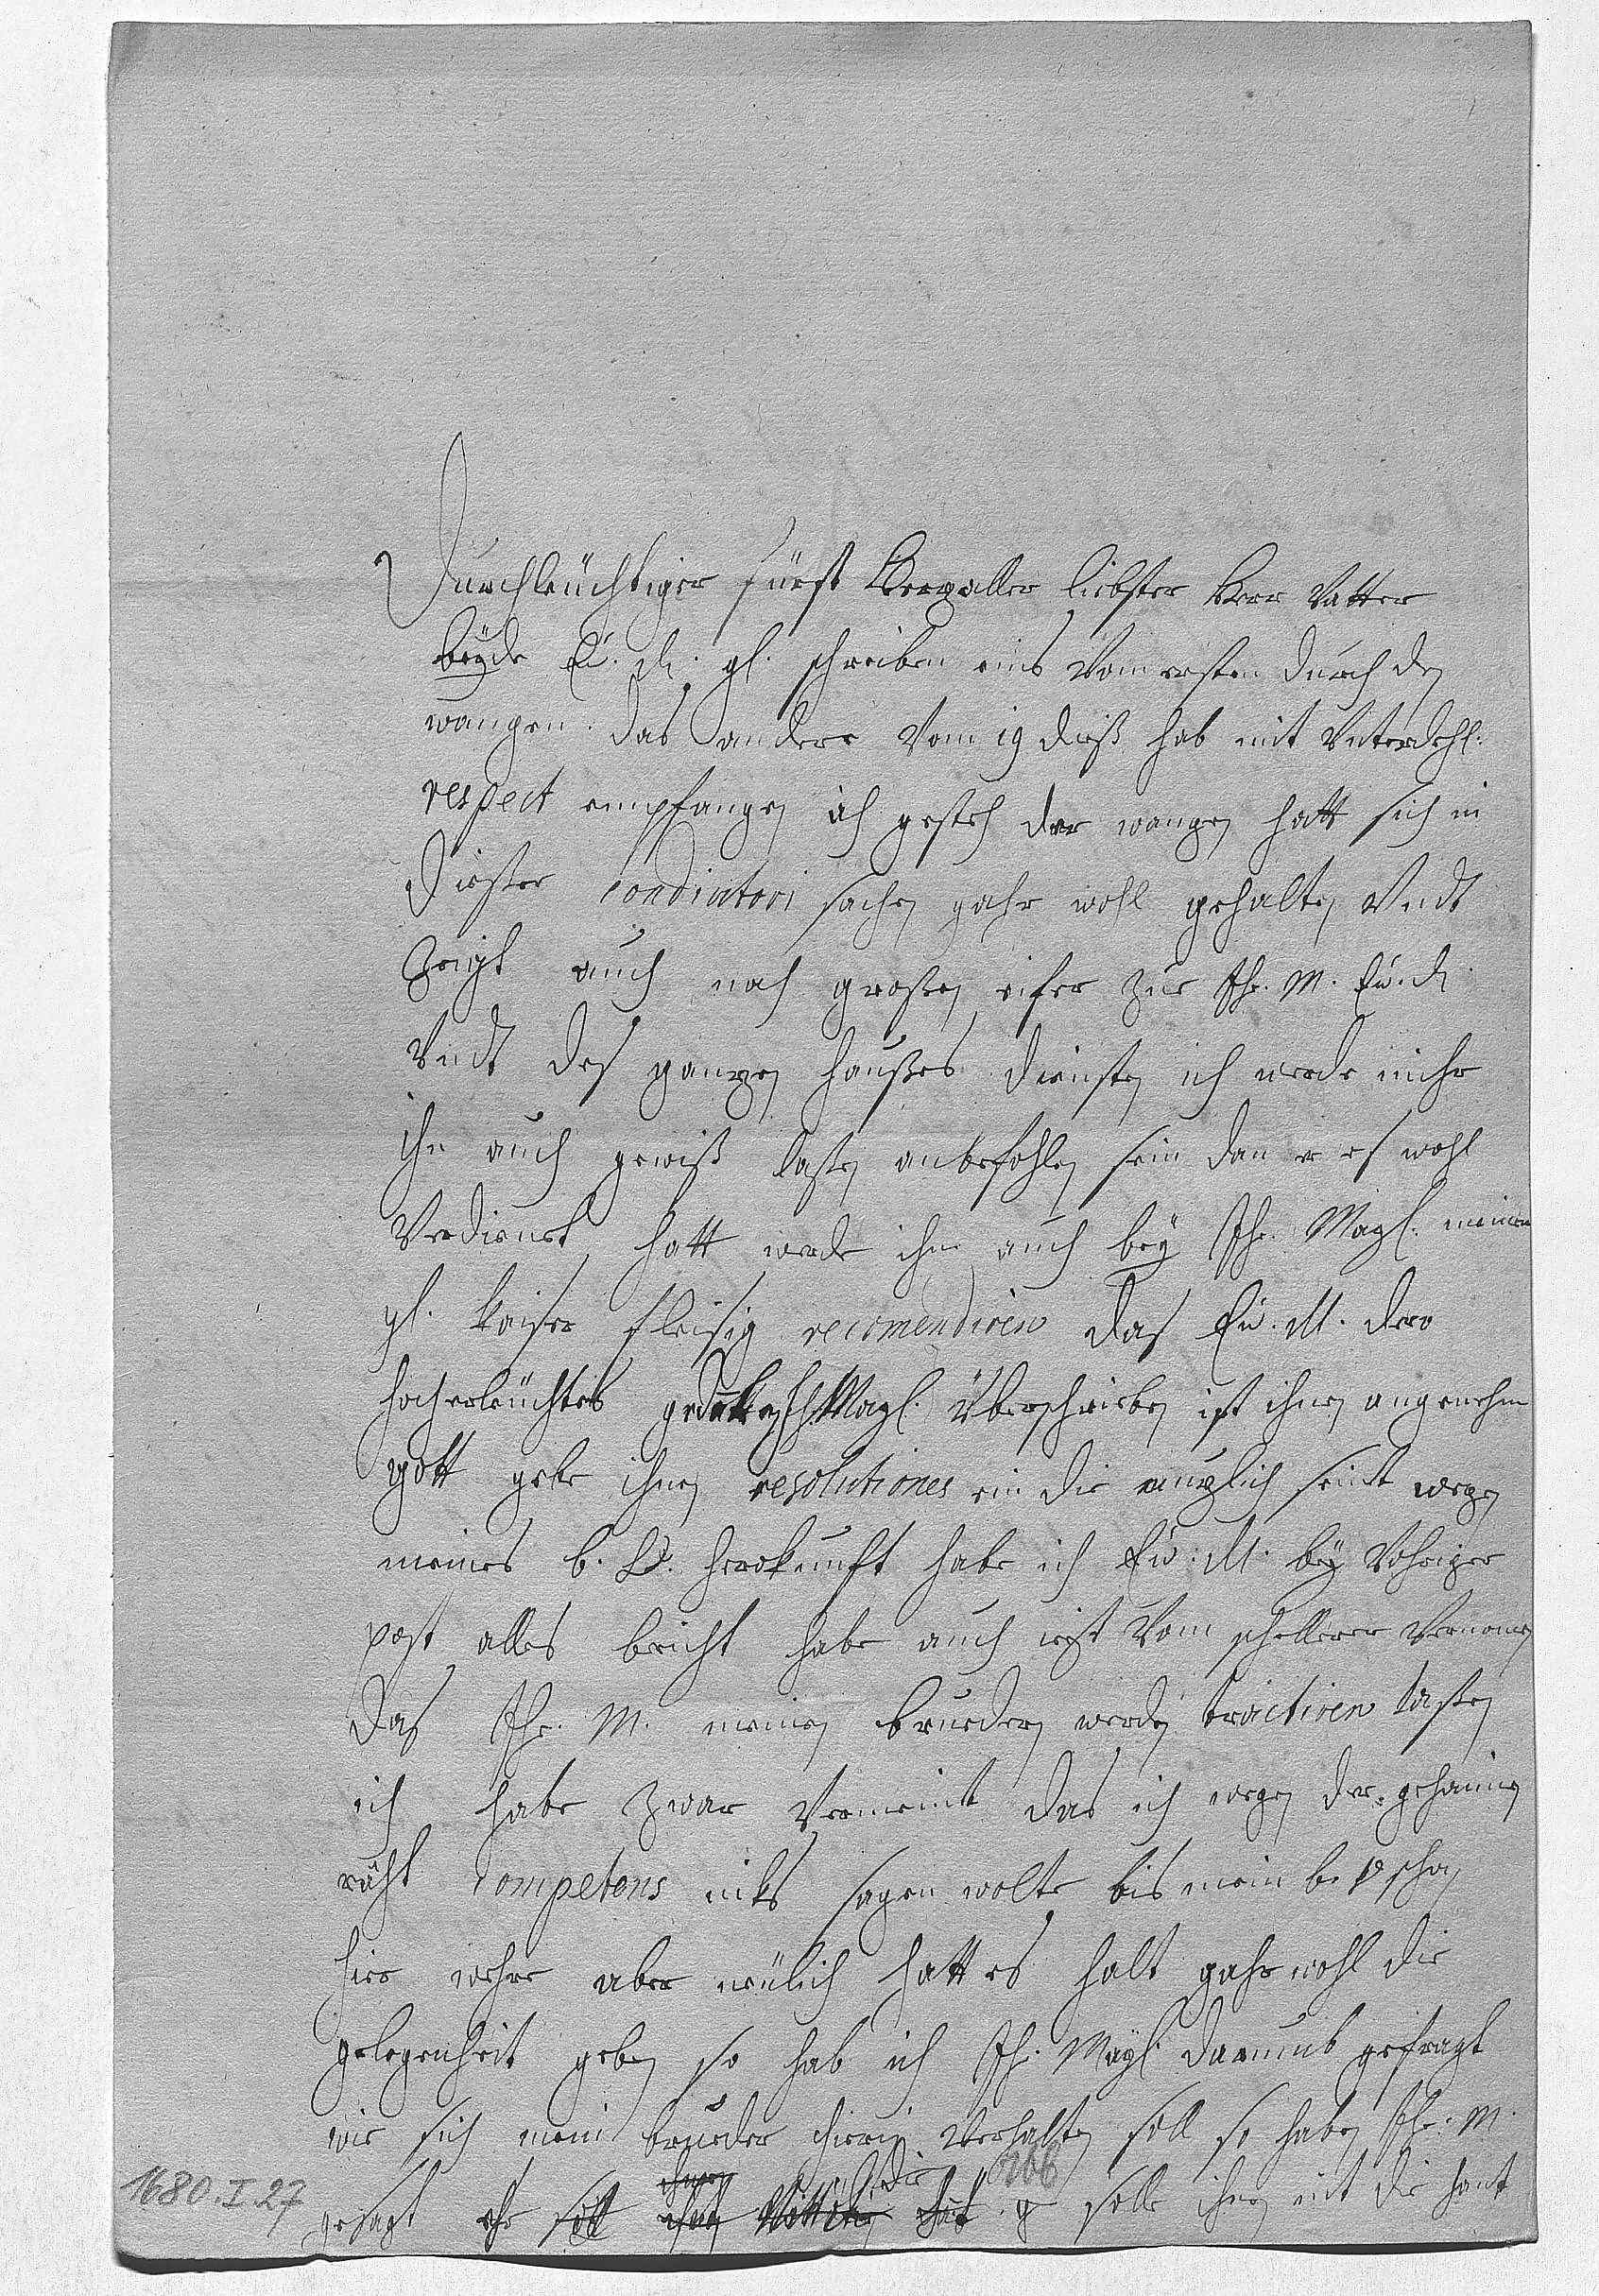 Durchleüchtiger fürst Herzaller liebster Herr Vatter
beyde Eu. D. gl. schreiben eins Vom ersten durch den
wangen das andere Vom 19 dieß hab mit Unterdehl.
respect empfangen ich gesteh der wangen hatt sich in
dießer coadiutori sachen gahr wohl gehalten Undt
Zeigt auch noch großen eifer zue Ihr. M. Eu. D.
Undt des ganzen haußes diensten ich werde mihr
ihn auch gewiß laßen anbefohlen sein dan er es wohl
Verdienet hatt werde ihn auch bey Ihr. Mayl. meinem
gl. Kaiser fleisig recomendiren das Eu. D. dero
hocherleuchtes gedanken Ihr Mayl. Überschrieben ist ihnen angenehm
gott gebe ihnen resolutiones ein die nuzlich seint wegen
meines b. herokunft habe ich Eu. D. bey Vohriger
post alles bericht habe auch iezt Vom schellerer Vernomen
das Ihr. M. meinen bruedern werden tractiren laßen
ich habe zwar Vermeint das ich wegen der gehaimen
räht competens niks sagen wolte bis mein b. schon
hier wehre aber neülich hatt es halt gahr wohl die
gelegenheit geben so hab ich Ihr. Mayl. darumb gefragt
wie sich mein brueder hierin Verhalten soll so haben Ihr. M.
gesagt er solle ihnen nit die hant
die
206
1680. I. 27